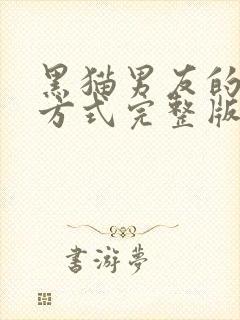 黑猫男友的
方式完整版
书游梦